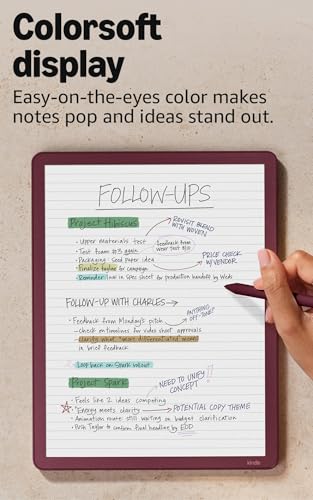 Colorsoft
display
Easy-on-the-eyes color makes
notes pop and ideas stand out.
FOLLOW-UPS
Project Hibiscus
REVISIT BLEND
WITH WOVEN
• Upper Materials test
• Test foam
Feedback from
wear test
• Packaging: Seed paper idea
PRICE CHECK
W/VENDOR
• Finalize tagline for campaign
• Reminder: Turn in spec sheet for production handoff by Weds
FOLLOW-UP WITH CHARLES →
ANYTHING
OFF TONE?
• Feedback from Monday's pitch
- check on timelines for video shoot approvals
- clarify what "more differentiated" means
in brief feedback
• Loop back on Spark rollout
Project Spark
NEED TO UNIFY
CONCEPT
• Feels like 2 ideas competing
• "Energy meets clarity" → POTENTIAL COPY THEME
• Animation route: still waiting on budget clarification
• Push Taylor to confirm final headline by EOD
kindle